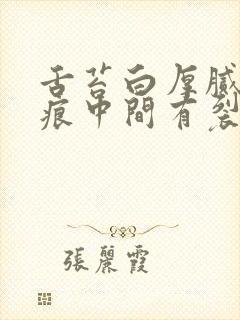 舌苔白厚膩
痕中間有裂
張麗霞